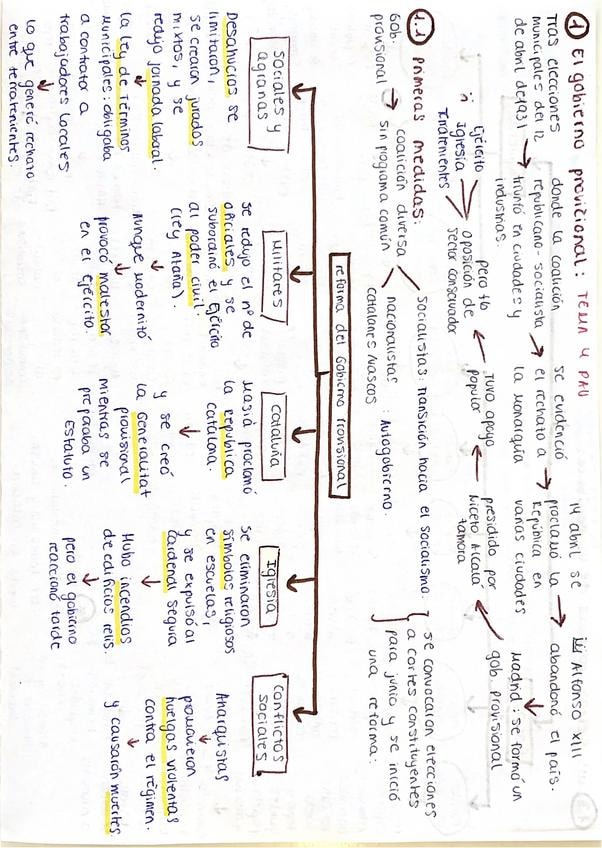 ① El gobierno provicional: TEMA 4 PAU
Tras elecciones
municipales del 12
de abril de 1931 →
donde la coalición
republicano-socialista
triunfó en ciudades y
industrias. →
se evidenció
el rechazo a
la monarquía →
14 abril se
proclamó la
República en
varias ciudades →
Alfonso XIII
abandonó el país.
↓
Madrid: se formó un
gob. provisional
presidido por
Niceto Alcalá
Zamora
←
Tuvo apoyo
popular
←
pero tb
oposición de
sector conservador
Ejército
Iglesia
Terratenientes
1.1 Primeras medidas:
Gob:
provisional →
coalición diversa
sin programa común
socialistas: transición hacia el socialismo.
nacionalistas : Autogobierno.
catalanes/vascos
se convocaron elecciones
a cortes constituyentes
para junio y se inició
una reforma:
reforma del Gobierno Provisional
Sociales y
agrarias
Desahucios se
limitaron,
se crearon jurados
mixtos, y se
redujo jornada laboral.
↓
la Ley de Términos
Municipales: obligaba
a contratar a
trabajadores locales
↓
lo que generó rechazo
entre terratenientes.
Militares
se redujo el nº de
oficiales y se
subordinó el Ejército
al poder civil.
(ley Azaña).
↓
Aunque modernizó
↓
provocó malestar
en el ejército.
Cataluña
Macià proclamó
la república
catalana.
↓
y se creó
la Generalitat
provisional
mientras se
preparaba un
Estatuto.
Iglesia
Se eliminaron
símbolos religiosos
en escuelas,
y se expulsó al
Cardenal Segura
↓
Hubo incendios
de edificios relis.
↓
pero el gobierno
reaccionó tarde
Conflictos
sociales
Anarquistas
↓
promovieron
huelgas violentas
contra el régimen.
↓
y causarón muertes.